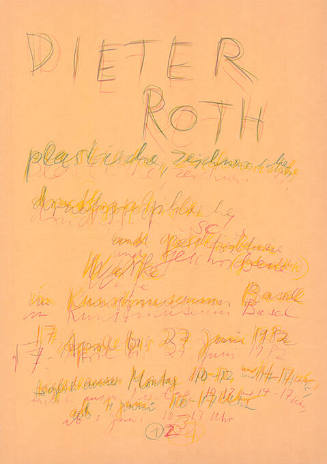 DIETER
ROTH
plastische, zeichnerische,
druckgraphische
und geschriebene
Werke
im Kunstmuseum Basel
17. April bis 27. Juni 1972
täglich ausser Montag 10-12 14-17 Uhr
ab 1. Juni 10-17 Uhr